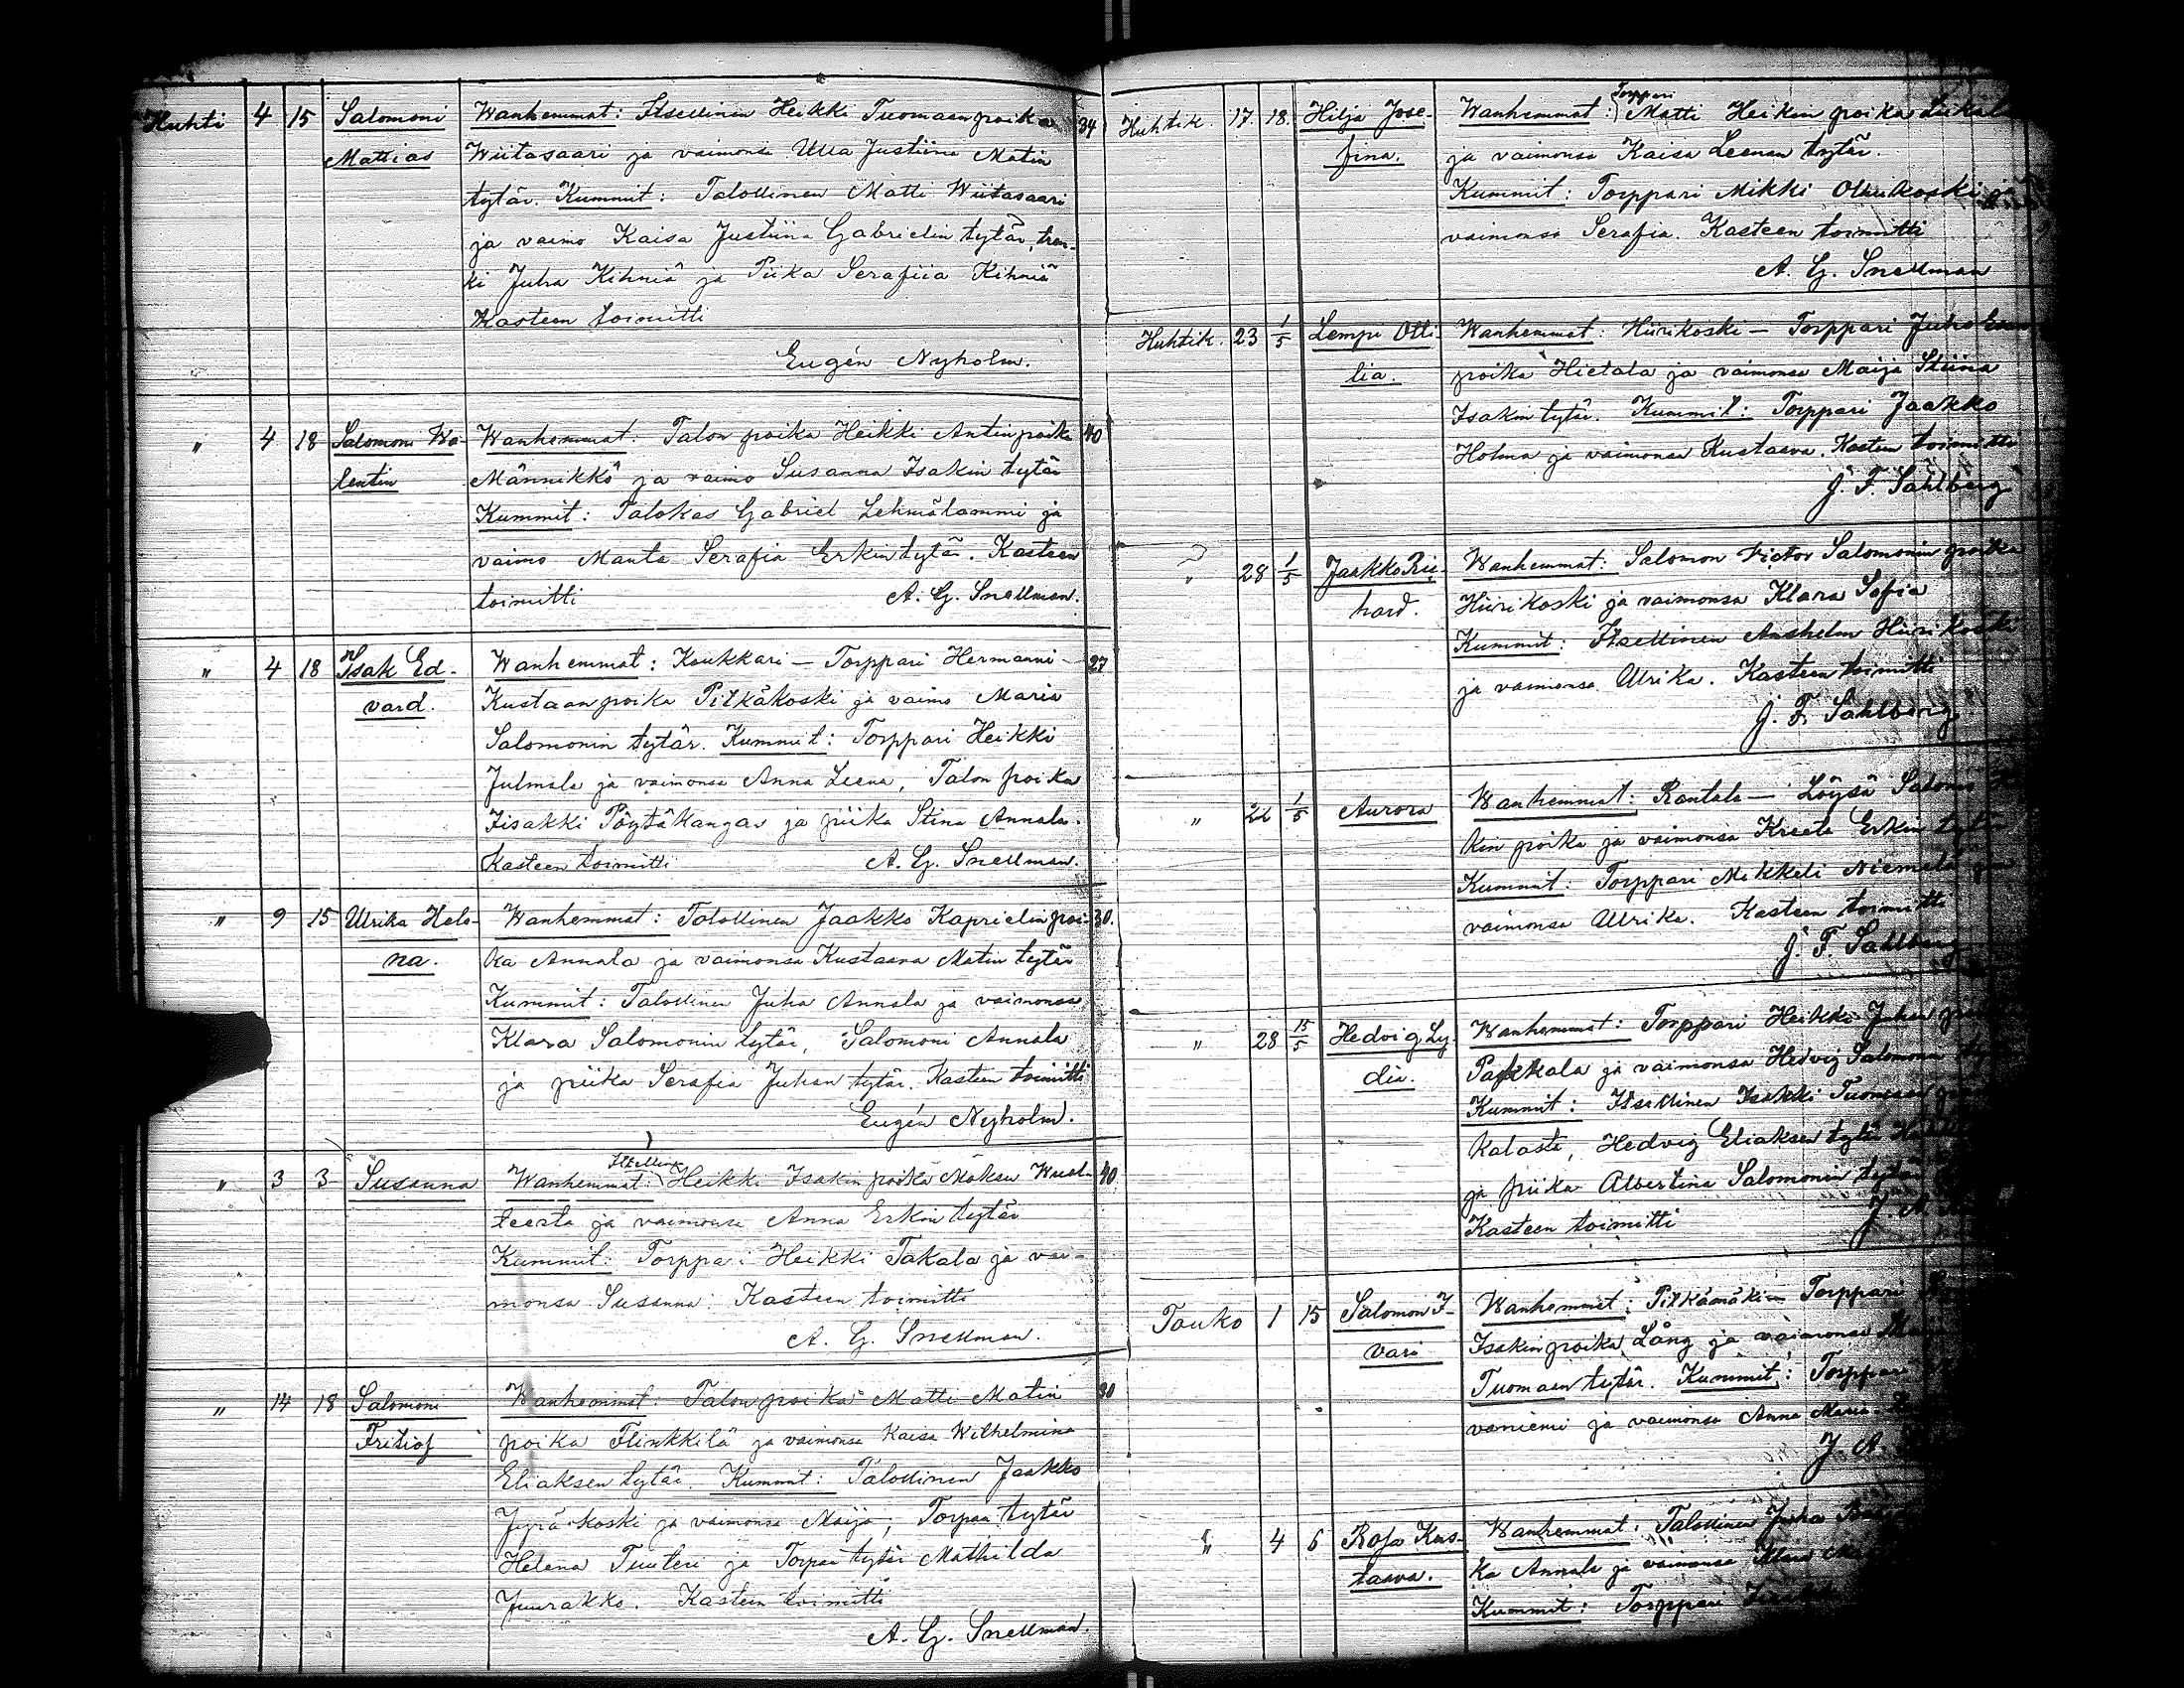 Huhti 4 15 Salomoni Wanhemmat: Itsellinen Heikki Tuomaanpoika 34
Mattias Wiitasaari ja vaimonsa Ulla Justiina Matin
tytär. Kummit: Talollinen Matti Wiitasaari
ja vaimo Kaisa Justiina Gabrielin tytär, ren-
ki Juha Kihniä ja Piika Serafiia Kihniä
Kasteen toimitti
Eugén Nyholm.
" 4 18 Salomoni Wa- Wanhemmat: Talon poika Heikki Antinpoika 40
lentin Männikkö ja vaimo Susanna Isakin tytär
Kummit: Talokas Gabriel Lehmälammi ja
vaimo Manta Serafia Erkintytär. Kasteen
toimitti A. G. Snellman.
" 4 18 Isak Ed- Wanhemmat: Koukkari – Torppari Hermanni 27
vard. Kustaanpoika Pitkäkoski ja vaimo Maria
Salomonin tytär. Kummit: Torppari Heikki
Julmala ja vaimonsa Anna Leena, Talon poika
Iisakki Pöytäkangas ja piika Stina Annala.
Kasteen toimitti A. G. Snellman.
" 9 15 Ulrika Hele- Wanhemmat: Talollinen Jaakko Kaprielin poi- 30.
na. ka Annala ja vaimonsa Kustaava Matin tytär
Kummit: Talollinen Juha Annala ja vaimonsa
Klara Salomonin tytär, Salomoni Annala
ja piika Serafia Juhan tytär. Kasteen toimitti
Eugén Nyholm.
Itsellinen
" 3 3 Susanna Wanhemmat: Heikki Isakin poika 40
ja vaimonsa Anna Erkin tytär
Kummit: Torppari Heikki Takala ja vai-
monsa Susanna. Kasteen toimitti
A. G. Snellman.
" 14 18 Salomoni Wanhemmat: Talonpoika Matti Matin 30
Fritiof poika Flinkkilä ja vaimonsa Kaisa Wilhelmina
Eliaksen tytär. Kummit: Talollinen Jaakko
Jyräkoski ja vaimonsa Maija, Torpan tytär
Helena Tuuteri ja Torpan tytär Mathilda
Juurakko. Kasteen toimitti
A. G. Snellman.
Torppari
Huhtik. 17. 18. Hilja Jose- Wanhemmat: Matti Heikin poika
fina. ja vaimonsa Kaisa Leenan tytär.
Kummit: Torppari Mikki Ollikoski ja
vaimonsa Serafia. Kasteen toimitti
A. G. Snellman
Huhtik. 23 1/5 Lempi Otti- Wanhemmat: Hiirikoski – Torppari Juho
lia. poika Hietala ja vaimonsa Maija Stiina
Isakin tytär. Kummit: Torppari Jaakko
Holma ja vaimonsa Kustaava. Kasteen toimitti
J. F. Sahlberg
" 28 1/5 Jaakko Rie- Wanhemmat: Salomon Victor Salomonin poika
hard. Hiirikoski ja vaimonsa Klara Sofia
Kummit: Itsellinen Anshelm Hiirikoski
ja vaimonsa Ulrika. Kasteen toimitti
J. F. Sahlberg.
" 22 1/5 Aurora Wanhemmat: Rantala – Löysä Salomo
kin poika ja vaimonsa Kreeta Erkin tytär
Kummit: Torppari Mikkeli Niemelä
vaimonsa Ulrika. Kasteen toimitti
J. F. Sahlberg
" 28 15/5 Hedvig Ly- Wanhemmat: Torppari Heikki Juhan
dia. ja vaimonsa Hedvig Salomonin
Kummit: Itsellinen Isakki Tuomaan
Hedvig Eliaksen tytär
ja piika Albertina Salomonin tytär
Kasteen toimitti J.
Touko 1 15 Salomon I- Wanhemmat: Pitkämäki – Torppari
vari Isakinpoika Lång ja vaimonsa
Tuomaan tytär. Kummit: Torppari
vaniemi ja vaimonsa Anna Maria.
J. A.
" 4 6 Rosa Kus- Wanhemmat: Talollinen Juha
taava. ka Annala ja vaimonsa
Kummit: Torppari